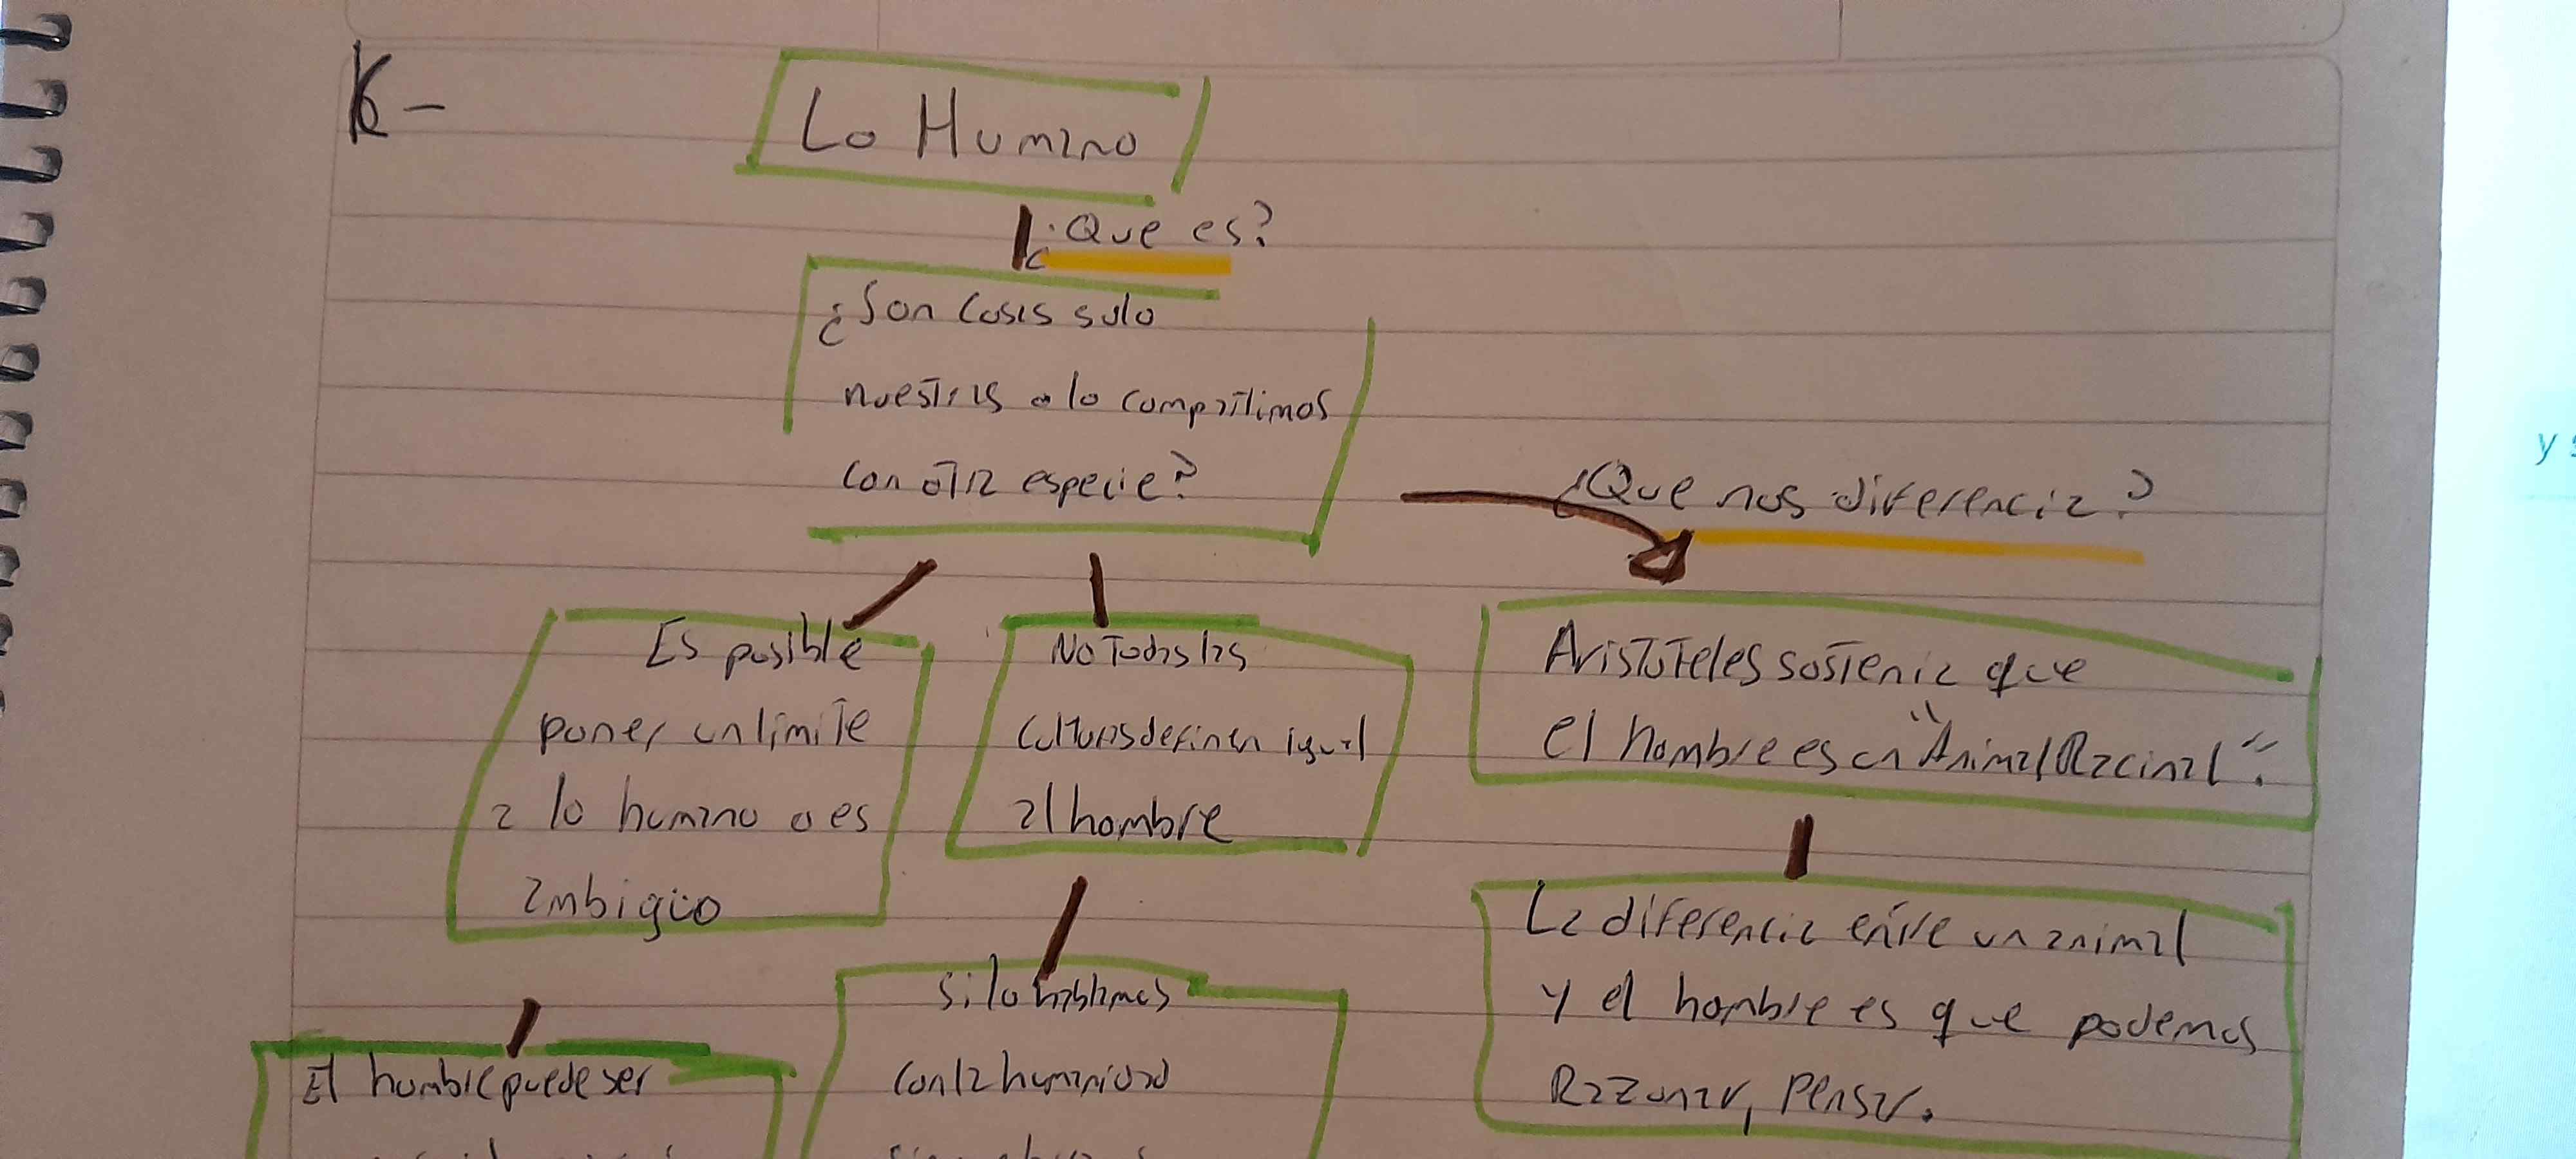 K-
Lo Humano
¿Que es?
¿Son cosas solo
nuestras o lo compartimos
con otra especie?
¿Que nos diferencia?
Es posible
poner un limite
a lo humano o es
ambigüo
No todas las
culturas definen igual
al hombre
Aristoteles sostenia que
el hombre es un "Animal Racinal".
La diferencia entre un animal
y el hombre es que podemos
Razonar, pensar.
El hombre puede ser
si lo hablamos
con la humanidad
y